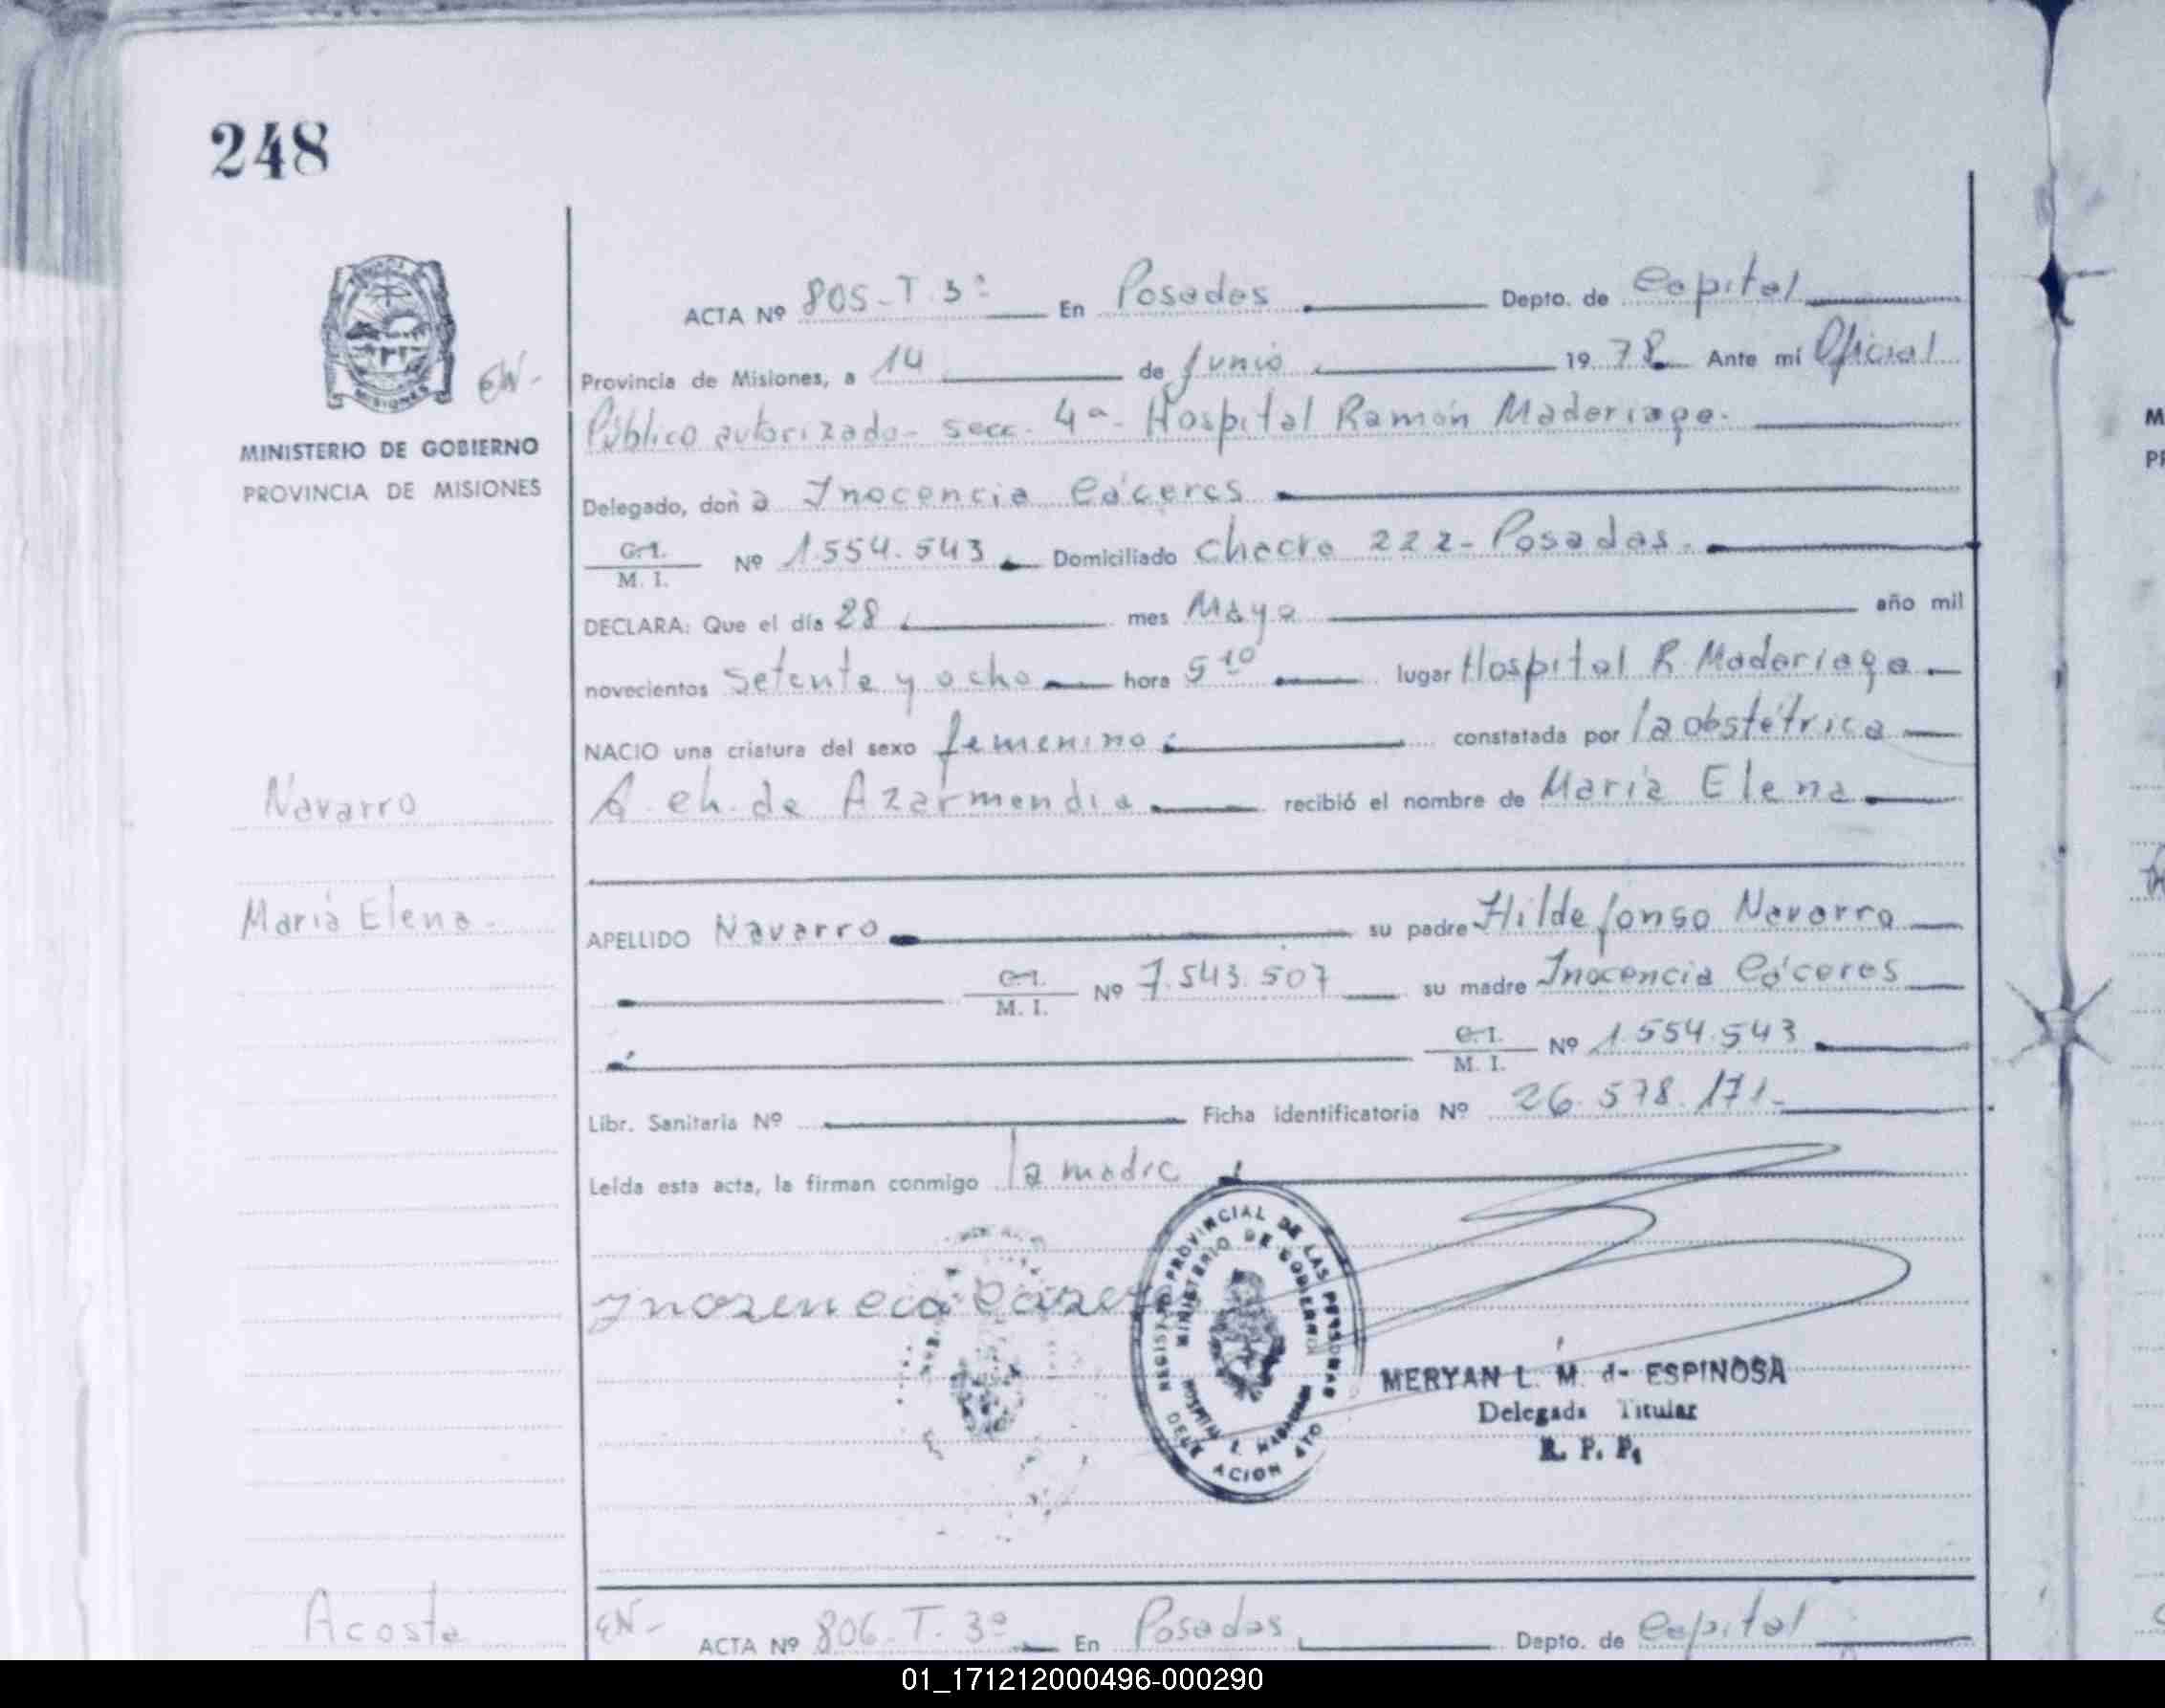 248
ACTA Nº 805-T.3º En Posadas Depto. de Capital
Provincia de Misiones, a 14 de Junio 1978 Ante mí Oficial
EN-
Público autorizado- secc. 4ª- Hospital Ramón Madariaga.
MINISTERIO DE GOBIERNO
PROVINCIA DE MISIONES
Delegado, doña Inocencia Cáceres
C. I.
M. I. Nº 1.554.543. Domiciliado Chacra 222- Posadas.
DECLARA: Que el día 28 mes Mayo año mil
novecientos setenta y ocho hora 5 10 lugar Hospital R. Madariaga
NACIO una criatura del sexo femenino constatada por la obstétrica
Navarro
A. ch. de Azarmendia recibió el nombre de María Elena
María Elena.
APELLIDO Navarro su padre Hildefonso Navarro
C. I.
M. I. Nº 7.543.507 su madre Inocencia Cáceres
C. I.
M. I. Nº 1.554.543
Libr. Sanitaria Nº Ficha identificatoria Nº 26.578.171-
Leída esta acta, la firman conmigo la madre
REGISTRO PROVINCIAL DE LAS PERSONAS
MINISTERIO DE GOBIERNO
HOSPITAL R. MADARIAGA
MERYAN L. M. de ESPINOSA
Delegada Titular
R. P. P.
Acosta
EN-
ACTA Nº 806-T.3º En Posadas Depto. de Capital
01_171212000496-000290